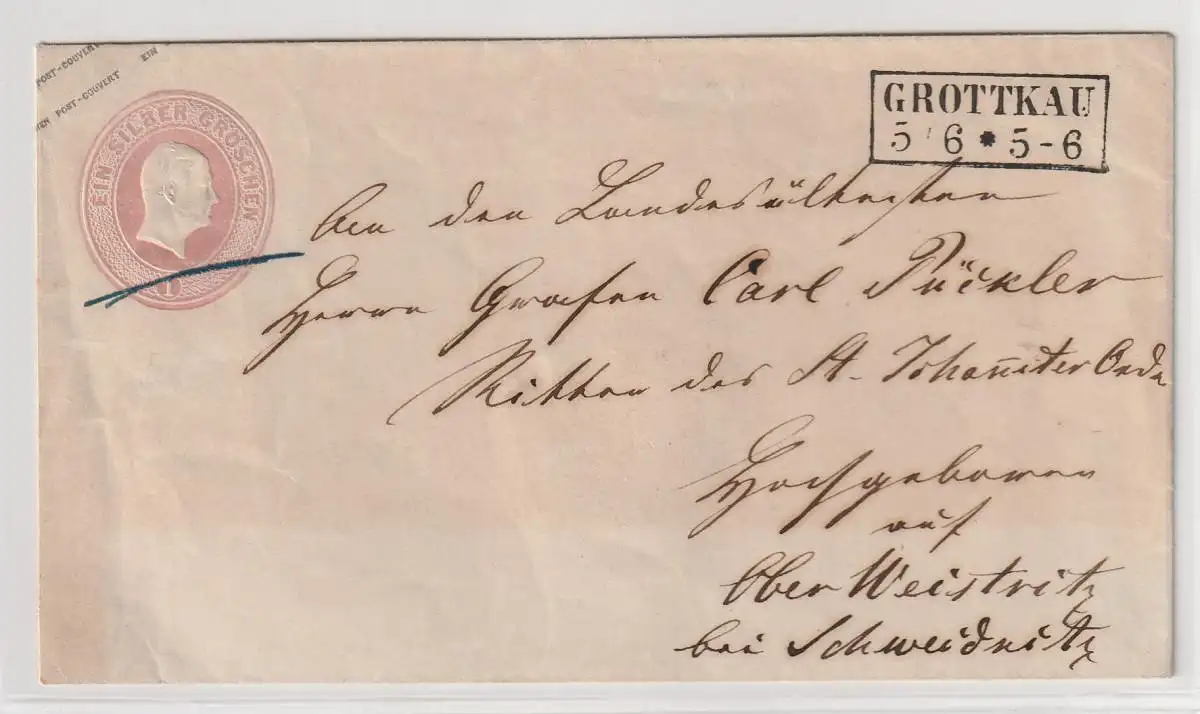 POST-COUVERT EIN
HEN POST-COUVERT
EIN SILBER GROSCHEN
1
GROTTKAU
5 6 * 5-6
An den Landesältesten
Herrn Grafen Carl Pückler
Ritter des St. Johanniter Orde
Hochgeboren
auf
Ober Weistritz
bei Schweidnitz